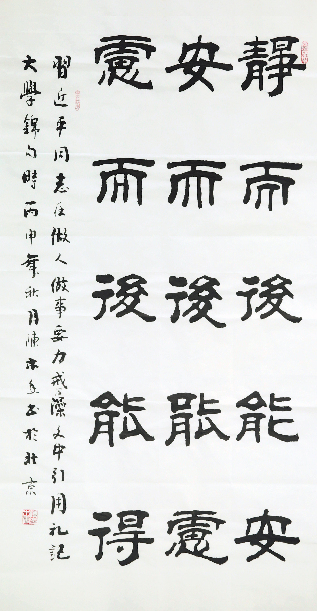 靜而後能安
安而後能慮
慮而後能得
習近平同志在做人做事要力戒澡文中引用礼記
大學錦句時丙申年秋月陳书於北京